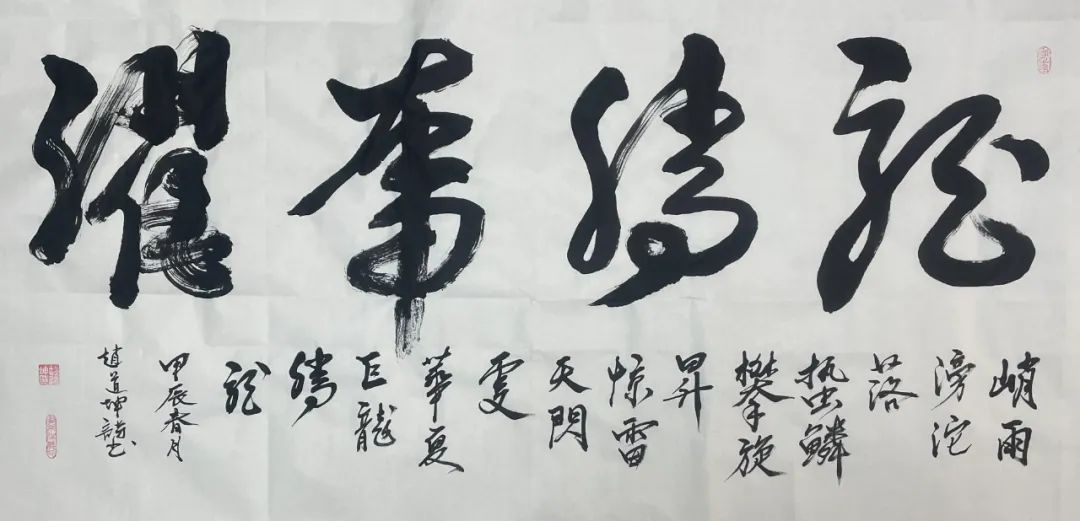 龍騰
峭雨
滂沱
落
蛰鳞
攀旋
昇
惊雷
天門
華夏
巨龍
騰
龍
甲辰春月
趙道坤詩书